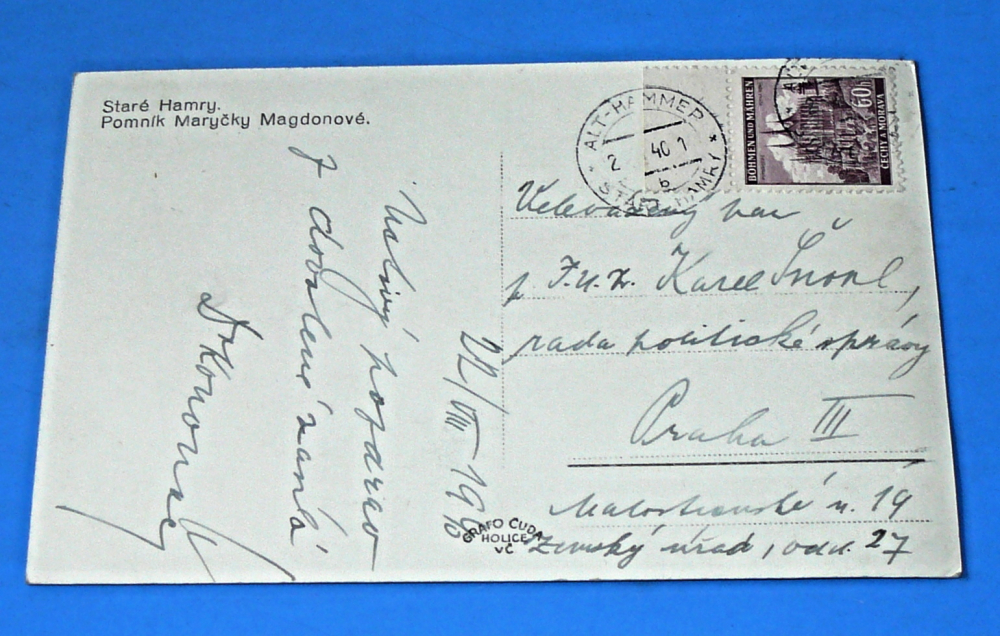 Staré Hamry.
Pomník Maryčky Magdonové.
ALT-HAMMER
40
b
STARÉ HAMRY
BÖHMEN UND MÄHREN
60h
ČECHY A MORAVA
Velevážený pan
p. J.U.Dr. Karel
rada politické správy
Praha III
Malostranské n. 19
Zemský úřad, odd. 27
22/VIII 1940
Uctivý pozdrav
z dovolené zasílá
Dr
GRAFO ČUDA
HOLICE
VČ